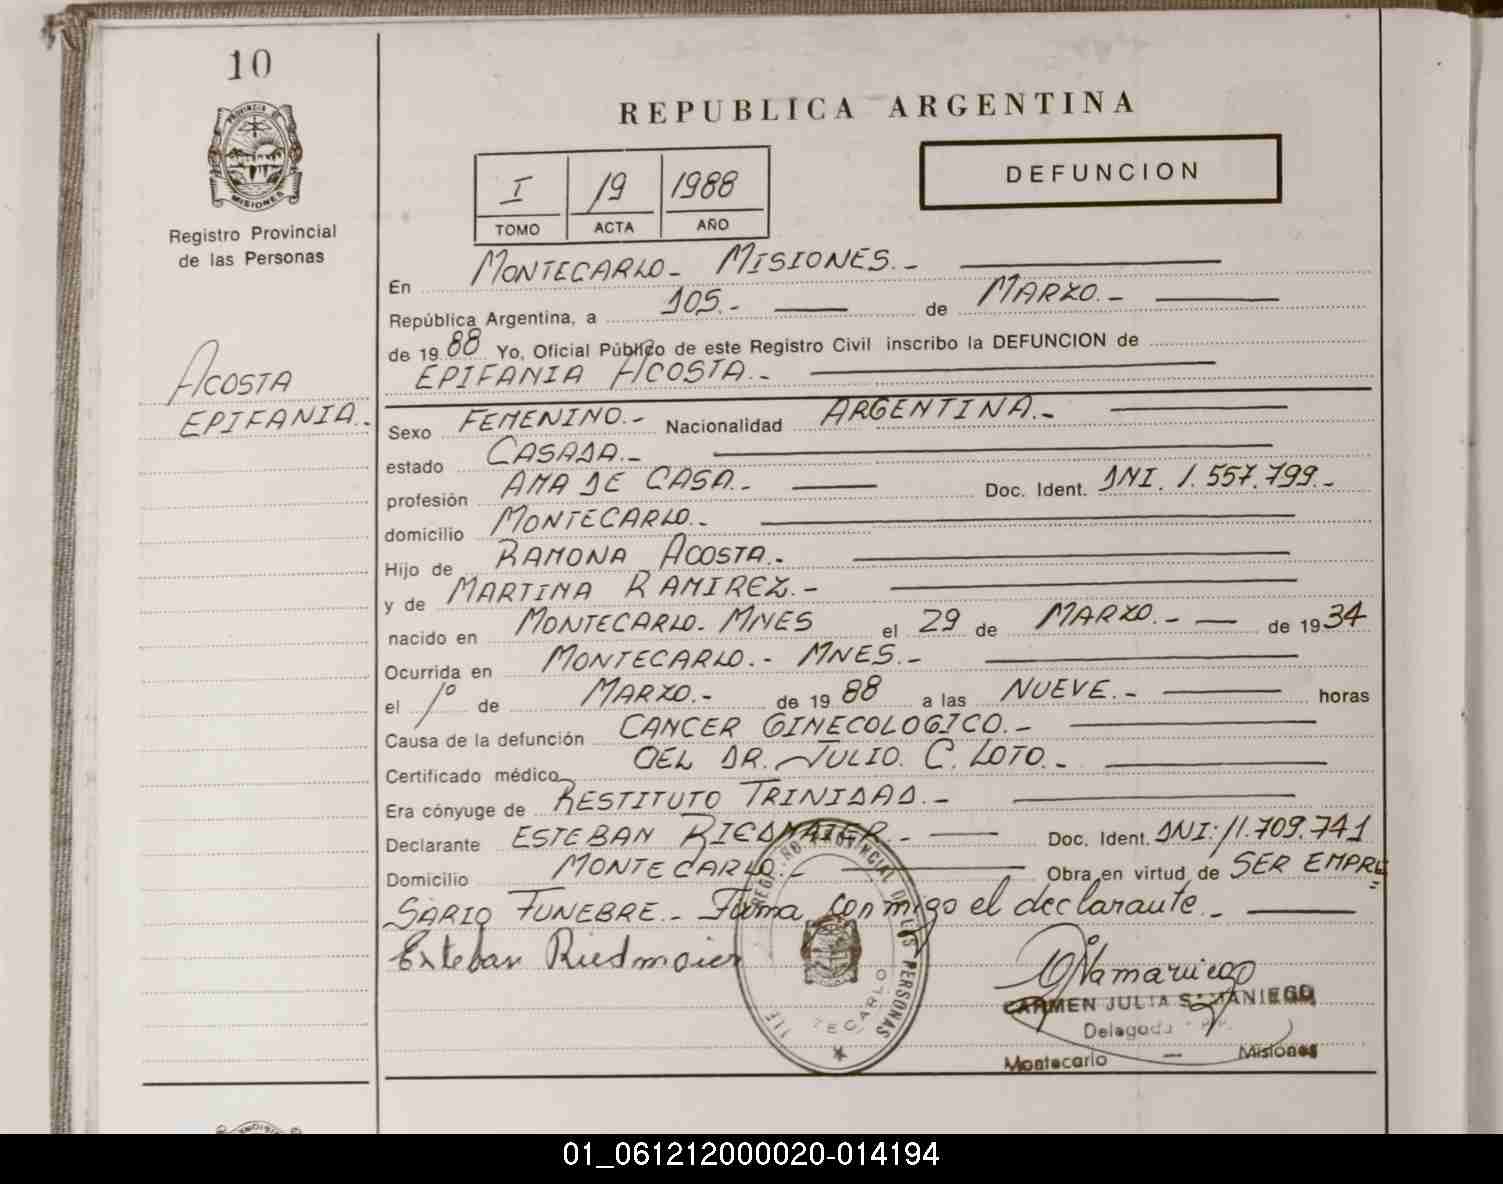 10
PROVINCIA DE
MISIONES
Registro Provincial
de las Personas
ACOSTA
EPIFANIA.-
REPUBLICA ARGENTINA
DEFUNCION
I 19 1988
TOMO ACTA AÑO
En MONTECARLO- MISIONES.-
República Argentina, a 105.- de MARZO.-
de 1988 Yo, Oficial Público de este Registro Civil inscribo la DEFUNCION de
EPIFANIA ACOSTA.-
Sexo FEMENINO.- Nacionalidad ARGENTINA.-
estado CASADA.-
profesión AMA DE CASA.- Doc. Ident. DNI. 1.557.799.-
domicilio MONTECARLO.-
Hijo de RAMONA ACOSTA.-
y de MARTINA RAMIREZ.-
nacido en MONTECARLO. MNES el 29 de MARZO.- de 1934
Ocurrida en MONTECARLO.- MNES.-
el 1º de MARZO.- de 1988 a las NUEVE.- horas
Causa de la defunción CANCER GINECOLOGICO.-
Certificado médico DEL DR. JULIO. C. LOTO.-
Era cónyuge de RESTITUTO TRINIDAD.-
Declarante ESTEBAN RIEDMAIER.- Doc. Ident. DNI: 11.709.741
Domicilio MONTECARLO.- Obra en virtud de SER EMPRE
SARIO FUNEBRE.- Firma conmigo el declarante.-
Esteban Riedmaier
PROVINCIAL DE LAS PERSONAS
TECARLO
CARMEN JULIA SAMANIEGO
Delegada
Montecarlo — Misiones
01_061212000020-014194